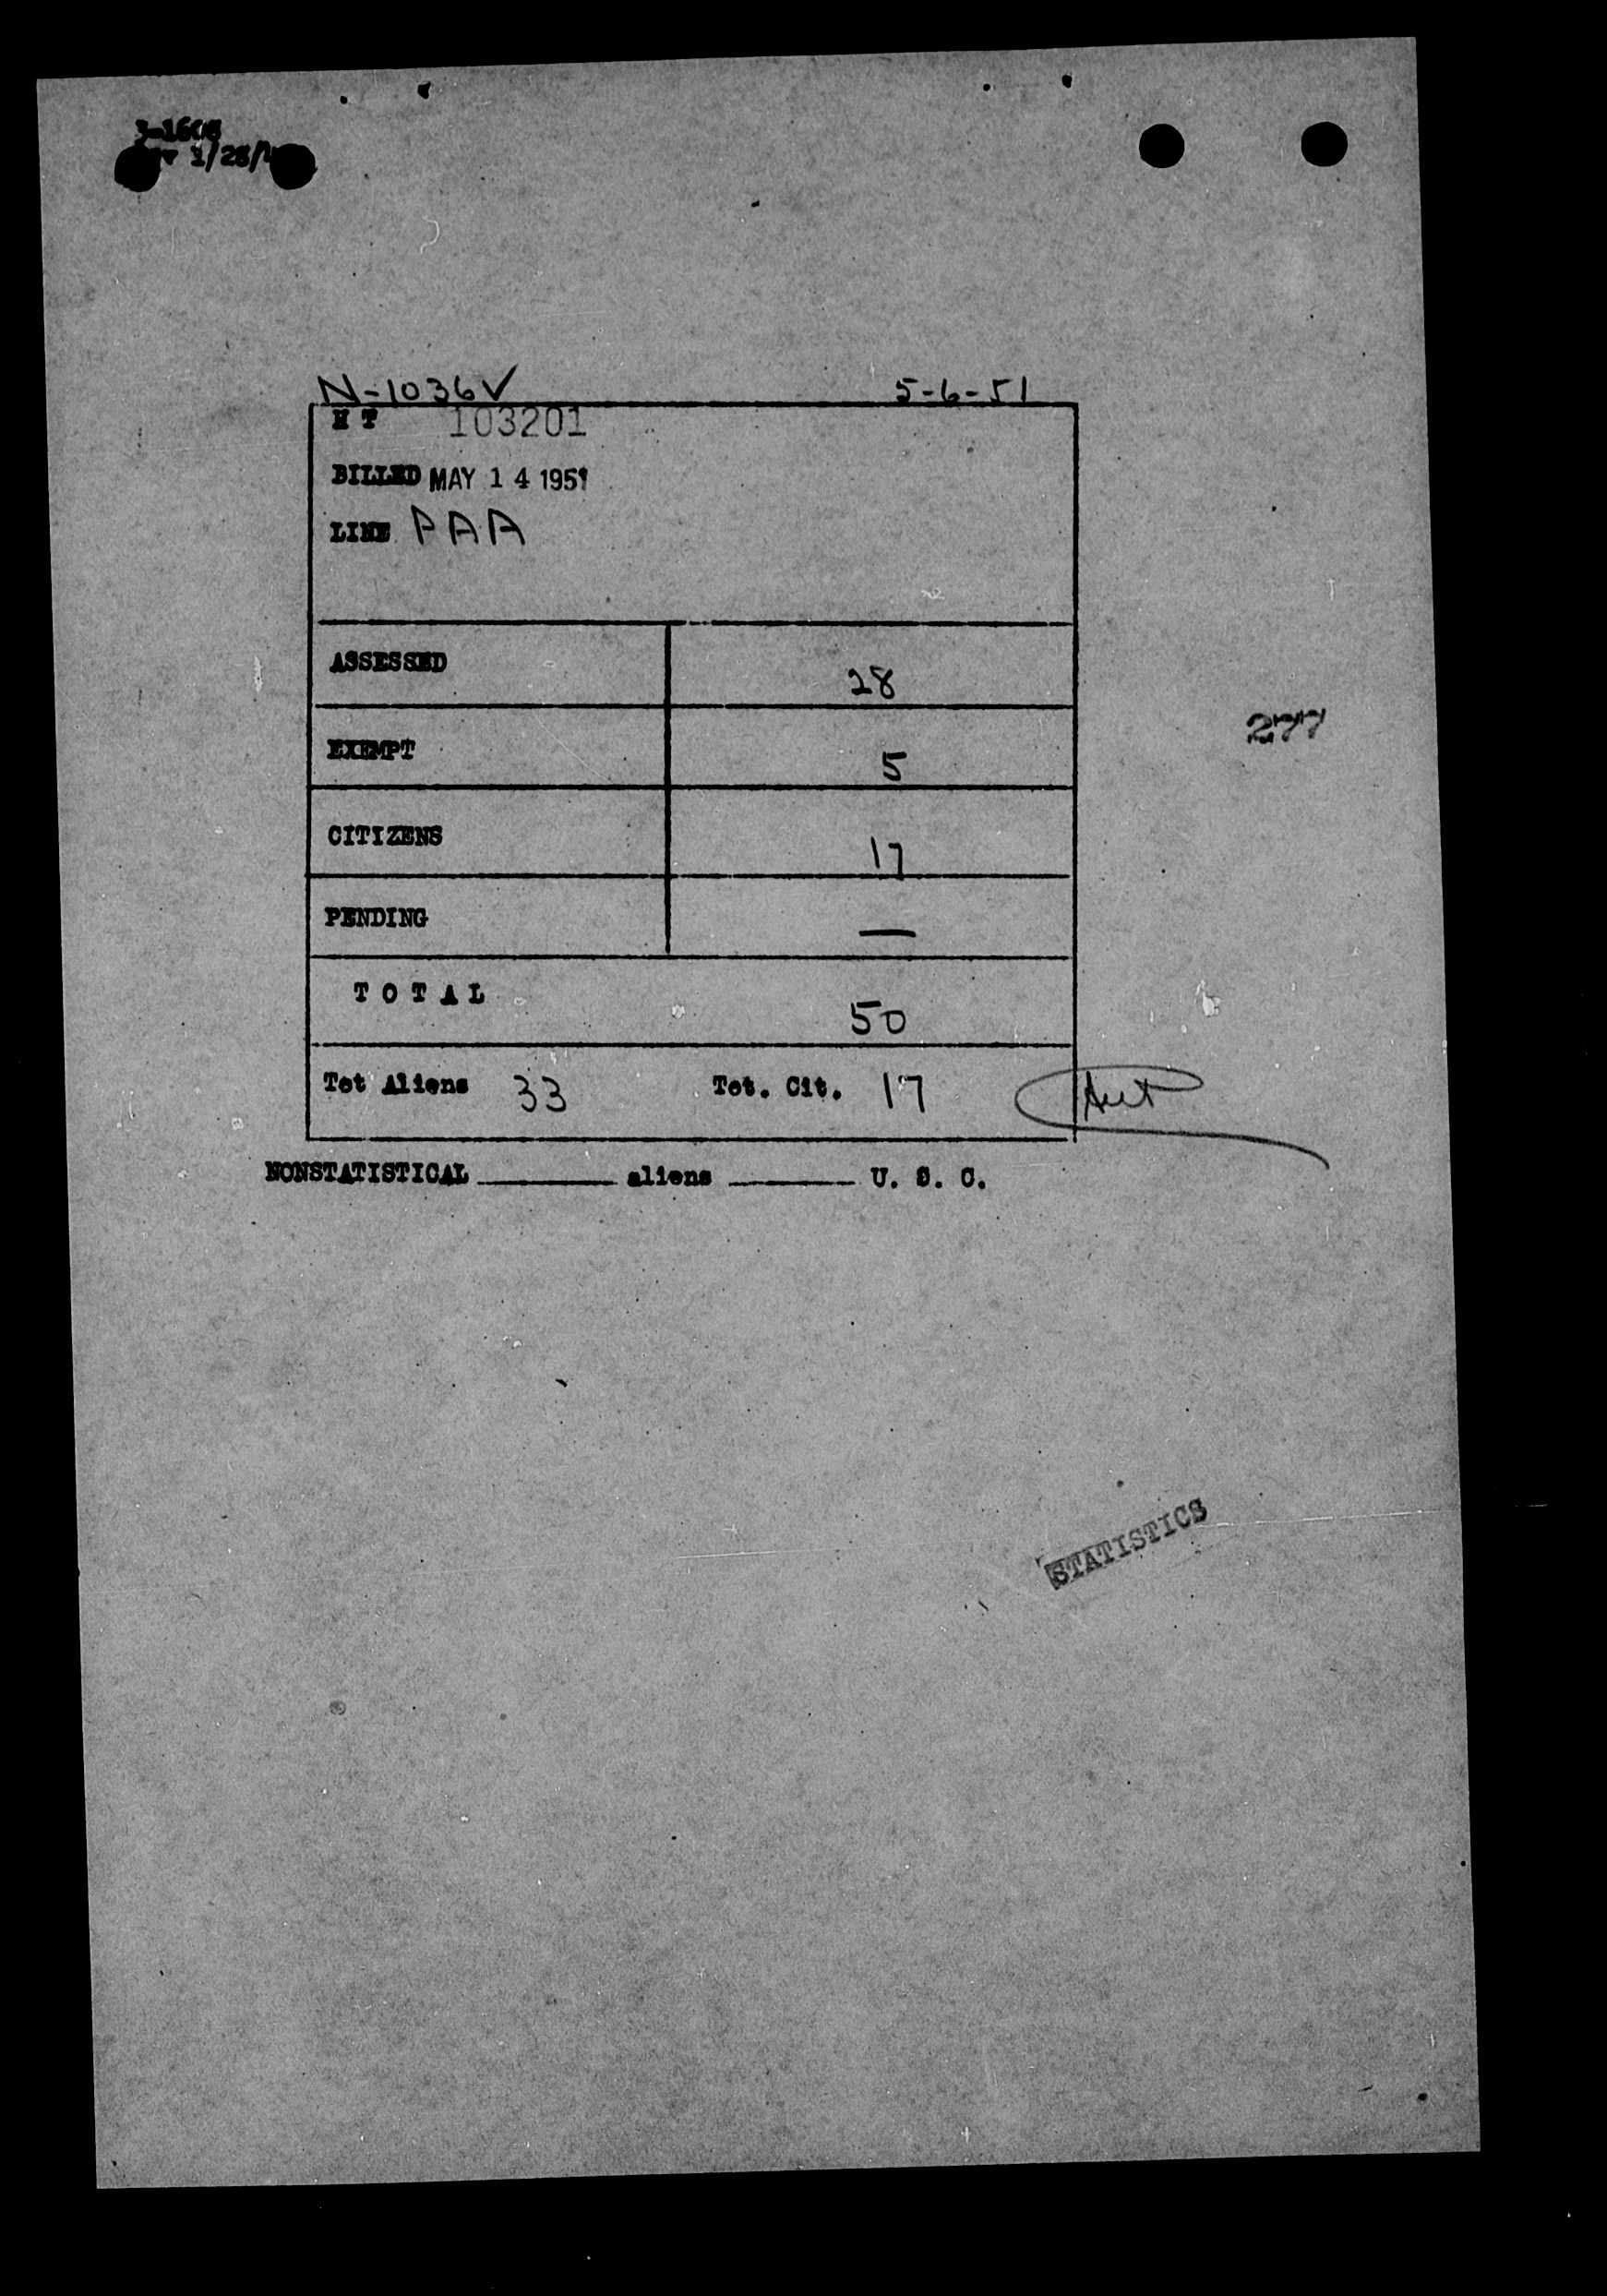 3-1608
1/28/
N-1036V 5-6-51
H T 103201
BILLED MAY 14 1951
LINE PAA
ASSESSED 28
EXEMPT 5
277
CITIZENS 17
PENDING —
T O T A L 50
Tot Aliens 33 Tot. Cit. 17
NONSTATISTICAL ______ aliens ______ U. S. C.
STATISTICS